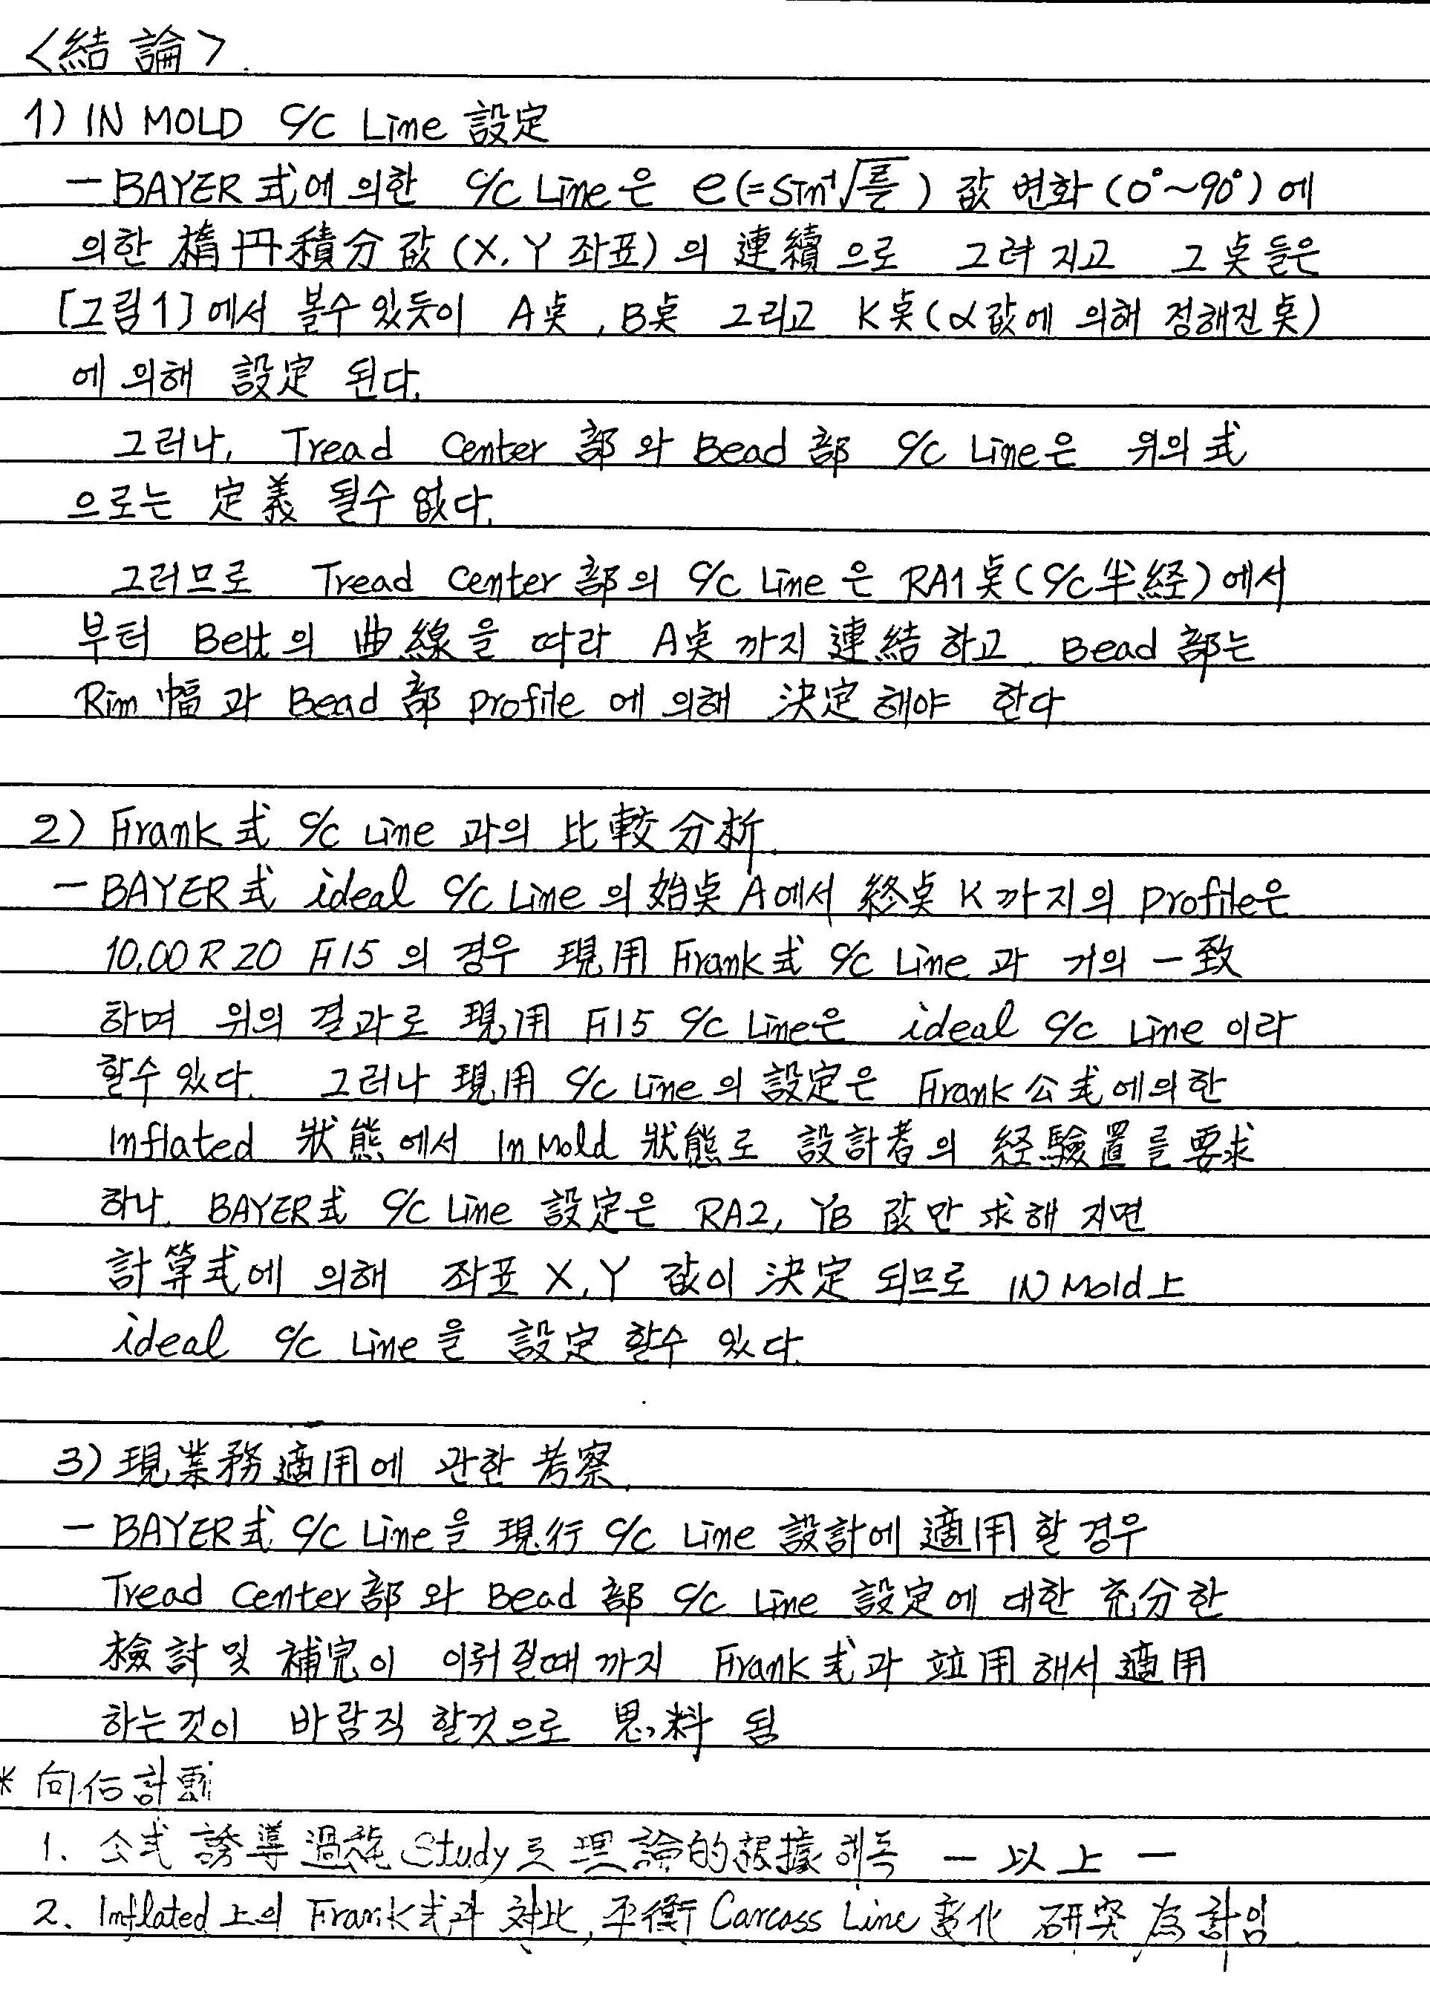 <結論>.
1) IN MOLD C/C Line 設定
- BAYER式에 의한 C/C Line은 e(=Sin⁻¹√) 값 변화 (0°~90°)에
의한 楕円積分값(X, Y 좌표)의 連續으로 그려지고 그 点들은
[그림1]에서 볼수있듯이 A点, B点 그리고 K点(α값에 의해 정해진点)
에 의해 設定 된다.
그러나, Tread Center部와 Bead部 C/C Line은 위의 式
으로는 定義 될수 없다.
그러므로 Tread Center部의 C/C Line은 RA1点(C/C半経)에서
부터 Belt의 曲線을 따라 A点까지 連結하고, Bead部는
Rim幅과 Bead部 profile에 의해 決定해야 한다
2) Frank式 C/C Line과의 比較分析.
- BAYER式 ideal C/C Line의 始点A에서 終点 K까지의 profile은
10.00R20 F115의 경우 現用 Frank式 C/C Line과 거의 一致
하며 위의 결과로 現用 F115 C/C Line은 ideal C/C Line이라
할수있다. 그러나 現用 C/C Line의 設定은 Frank公式에의한
Inflated 狀態에서 In Mold 狀態로 設計者의 経験置를 要求
하나, BAYER式 C/C Line 設定은 RA2, YB 값만 求해 지면
計算式에 의해 좌표 X, Y 값이 決定 되므로 IN Mold上
ideal C/C Line을 設定 할수 있다.
3) 現業務適用에 관한 考察.
- BAYER式 C/C Line을 現行 C/C Line 設計에 適用할 경우
Tread Center部와 Bead部 C/C Line 設定에 대한 充分한
檢討 및 補完이 이뤄질때까지 Frank式과 竝用해서 適用
하는것이 바람직 할것으로 思料 됨
* 向后計劃
1. 公式 誘導過程 Study로 理論的根據 해독 - 以上 -
2. Inflated上의 Frank式과 対比, 平衡 Carcass Line 変化 研究 為計임.